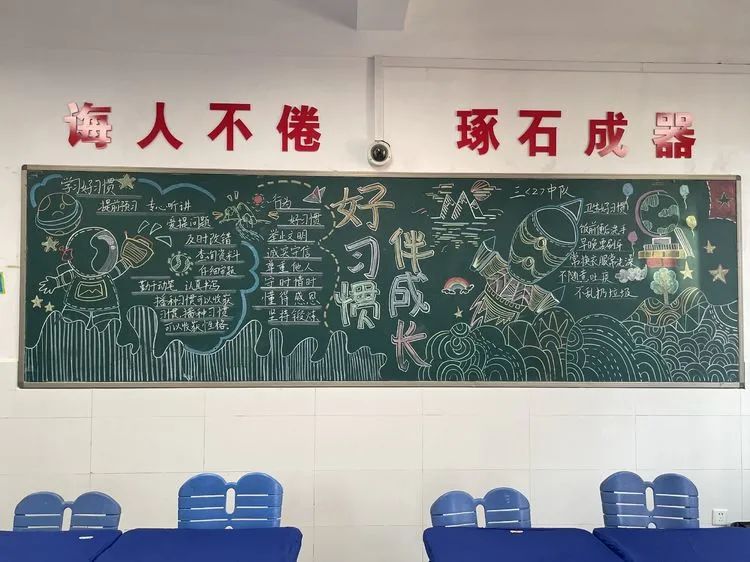 诲人不倦
琢石成器
学习好习惯
提前预习 专心听讲
爱提问题
及时改错
查阅资料
仔细审题
勤动动笔 认真书写
播种习惯可以收获
习惯,播种习惯
可以收获性格
行为
好习惯
举止文明
诚实守信
尊重他人
守时惜时
懂得感恩
坚持锻炼
好习惯
伴成长
三<2>中队
卫生好习惯
饭前便后洗手
早晚要刷牙
常换衣服常洗澡
不随意吐痰
不乱扔垃圾